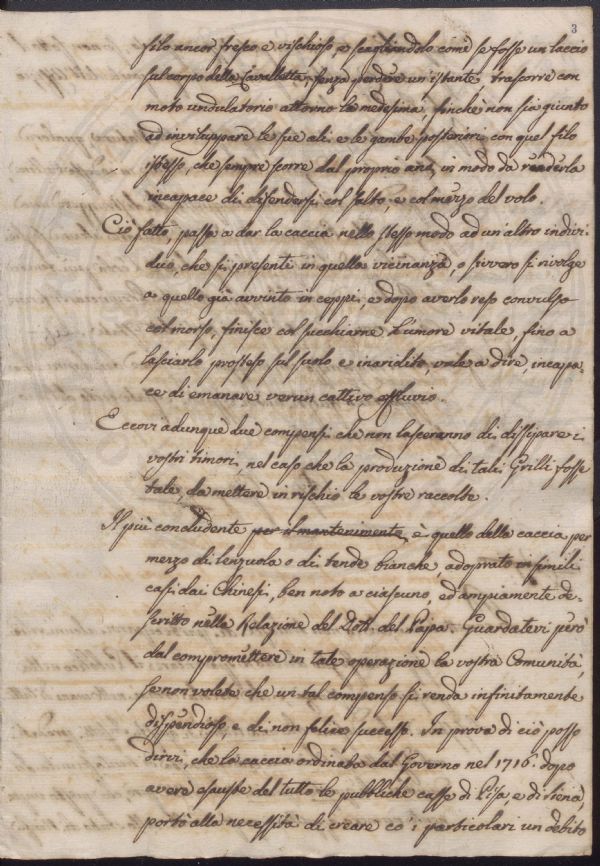 3
filo ancor fresco e vischioso e scagliandolo come se fosse un laccio
sul corpo della Cavalletta, senza perdere un istante trascorre con
moto undulatorio attorno la medesima, finchè non sia giunto
ad inviluppare le sue ali e le gambe posteriori con quel filo
istesso, che sempre scorre dal proprio ano, in modo da renderla
incapace di difendersi col salto, e col mezzo del volo.
Ciò fatto, passa a dar la caccia nello stesso modo ad un altro indivi
duo, che si presenti in quella vicinanza, o sivvero si rivolge
a quello già avvinto in ceppi, e dopo averlo reso convulso
col morso, finisce col succhiarne l'umore vitale, fino a
lasciarlo prosteso sul suolo e inaridito, vale a dire, incapa
ce di emanare verun cattivo effluvio.
Eccovi adunque due compensi che non lasceranno di dissipare i
vostri timori, nel caso che la produzione di tali Grilli fosse
tale, da mettere in rischio le vostre raccolte.
Il più concludente per il mantenimento è quello della caccia per
mezzo di lenzuola o di tende bianche adoprato in simili
casi dai Chinesi, ben noto a ciascuno, ed ampiamente de-
scritto nella Relazione del Dott. del Papa. Guardatevi però
dal compromettere in tale operazione la vostra Comunità,
se non volete che un tal compenso si renda infinitamente
dispendioso, e di non felice successo. In prova di ciò posso
dirvi, che la caccia ordinata dal Governo nel 1716. dopo
avere esauste del tutto le pubbliche casse di Pisa, e di Siena,
portò alla necessità di creare co' i particolari un debito